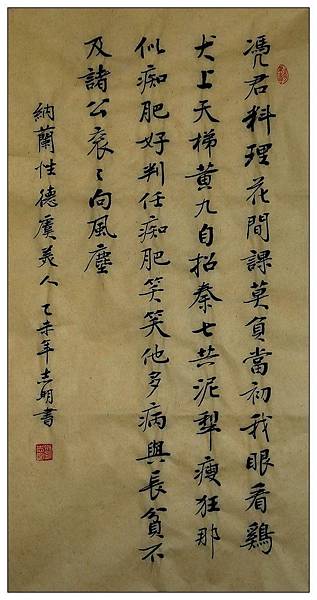 凴君料理花間課莫負當初我眼看鷄
犬上天梯黃九自招秦七共泥犁瘦狂那
似痴肥好判任痴肥笑笑他多病與長貧不
及諸公袞〻向風塵
納蘭性德虞美人 乙未年志明書